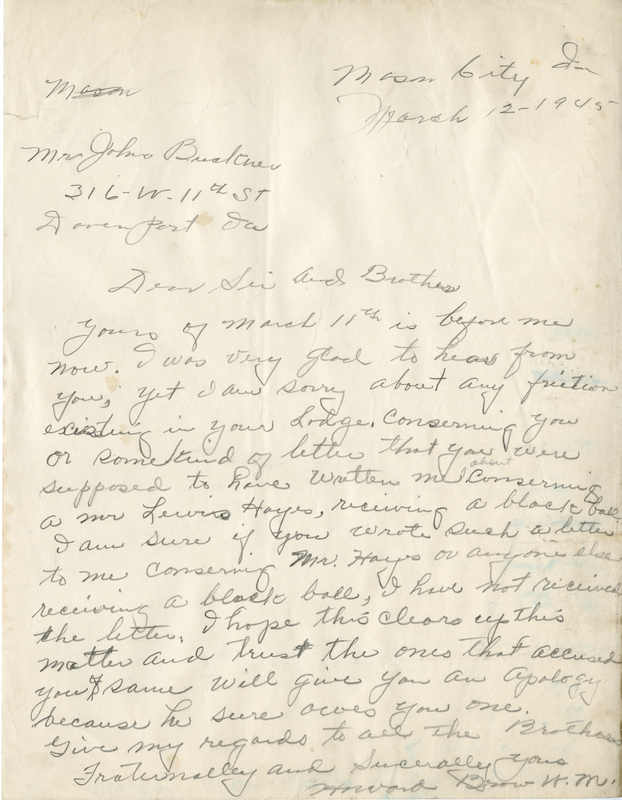 Mason City Ia
March 12-1945
Mason
Mr John Buckner
316-W-11th St
Davenport Ia
Dear Sir And Brother
Yours of March 11th is before me
now. I was very glad to hear from
you, yet I am sorry about any friction
existing in your Lodge. Conserning you
or some kind of letter that you were
supposed to have written me about Conserning
a mr Lewis Hayes, reciving a black ball
I am sure if you wrote such a letter
to me conserning Mr. Hayes or anyone else
receiving a black ball, I have not received
the letter. I hope this clears up this
matter and trust the ones that accused
you of same will give you an Apology
because he sure owes you one.
Give my regards to all the Brothers
Fraternalley and Sincerally yours
Howard Brown W.M.